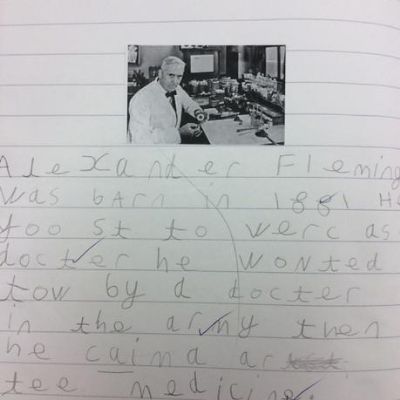 Alexander Fleming
was barn in 1881 He
yoo st to werc as
docter he wonted
tow by a docter
in the army then
he caimd ar
tee medicine.